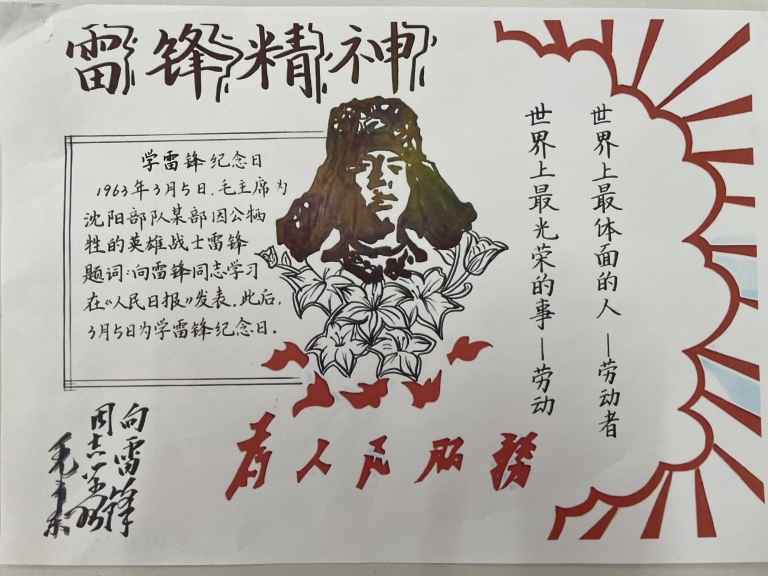 雷锋精神
学雷锋纪念日
1963年3月5日,毛主席为
沈阳部队某部因公牺
牲的英雄战士雷锋
题词:向雷锋同志学习
在《人民日报》发表.此后,
3月5日为学雷锋纪念日.
世界上最体面的人—劳动者
世界上最光荣的事—劳动
向雷锋
同志学习
毛泽东
为人民服務